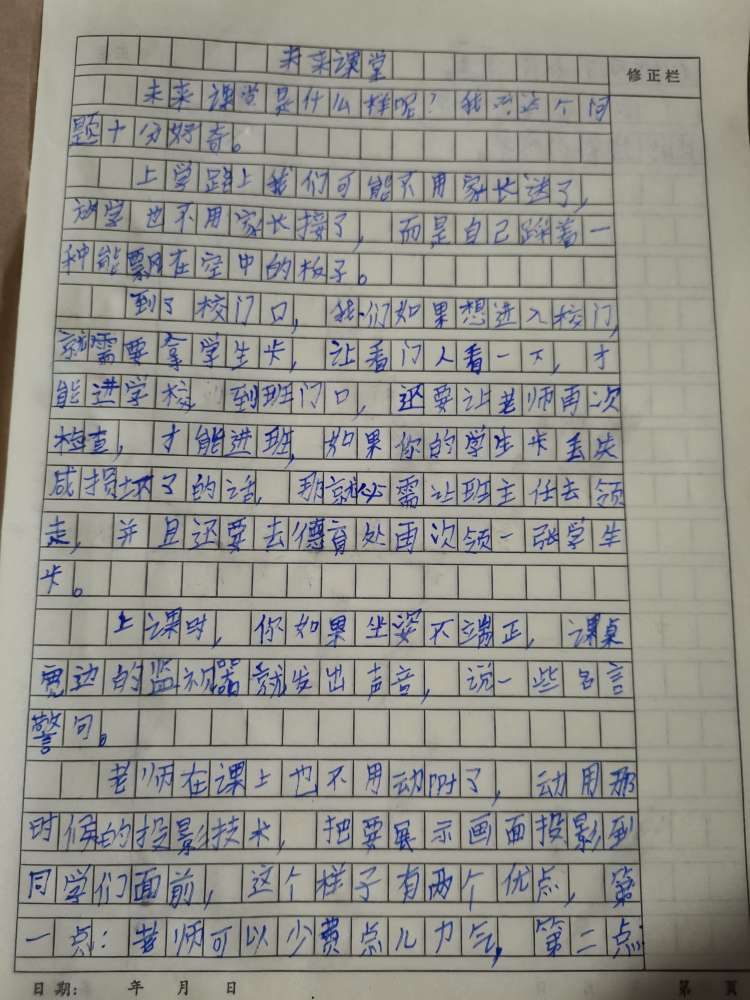 未来课堂
修正栏
未来课堂是什么样呢？我对这个问
题十分好奇。
上学路上我们可能不用家长送了，
放学也不用家长接了，而是自己踩着一
种能飘在空中的板子。
到了校门口，我们如果想进入校门，
就需要拿学生卡，让看门人看一下，才
能进学校，到班门口，还要让老师再次
检查，才能进班，如果你的学生卡丢失
或损坏了的话，那就需让班主任去领
走，并且还要去德育处再次领一张学生
卡。
上课时，你如果坐姿不端正，课桌
旁边的监视器就发出声音，说一些名言
警句。
老师在课上也不用动脚了，动用那
时候的投影技术，把要展示画面投影到
同学们面前，这个样子有两个优点，第
一点：老师可以少费点儿力气，第二点
日期： 年 月 日
第 页